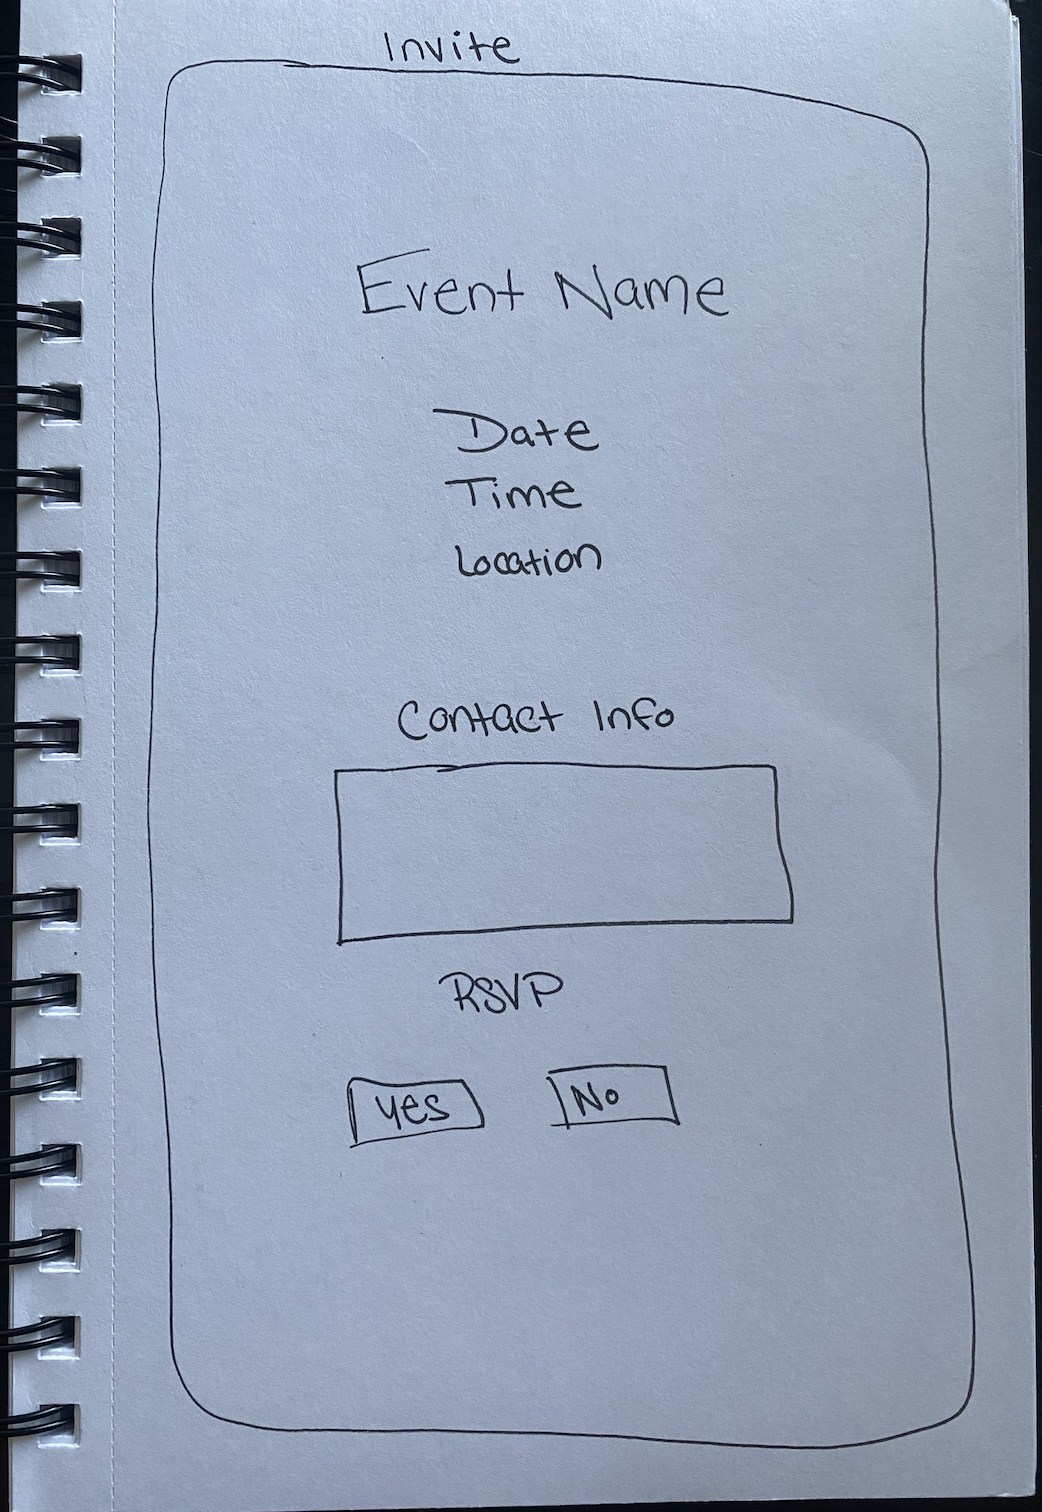 Invite
Event Name
Date
Time
Location
Contact Info
RSVP
Yes No